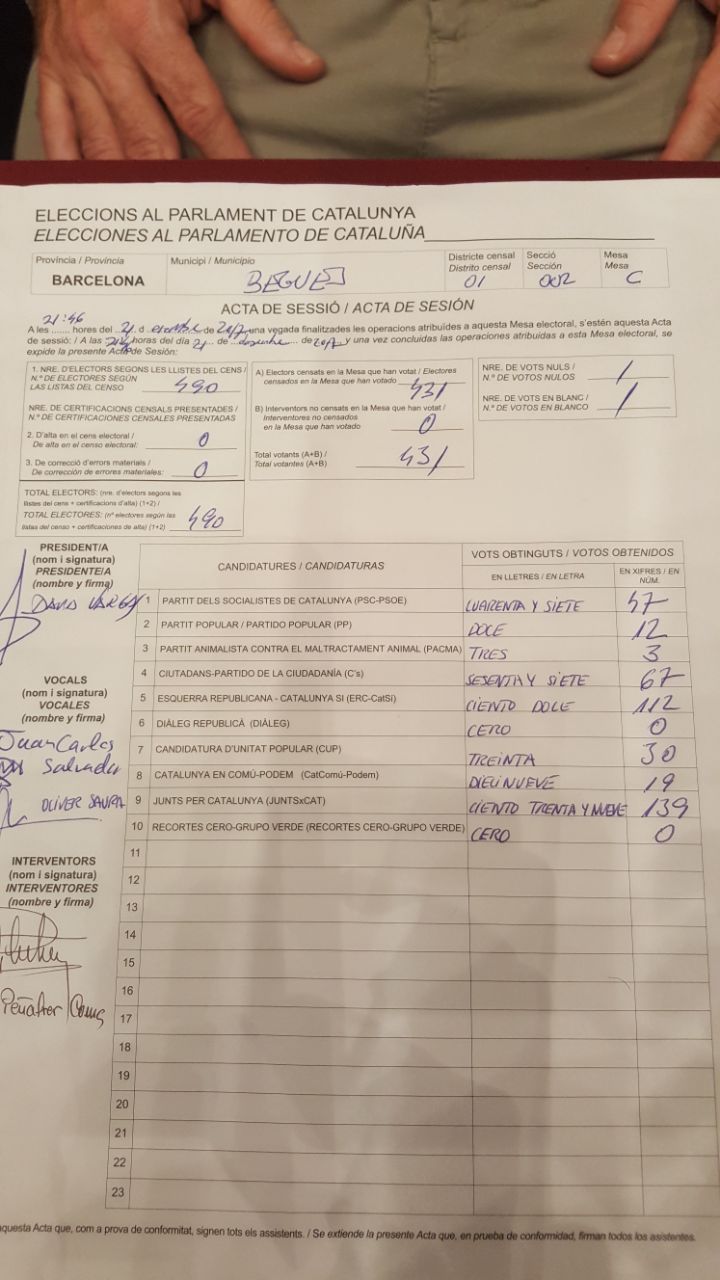 ELECCIONS AL PARLAMENT DE CATALUNYA
ELECCIONES AL PARLAMENTO DE CATALUÑA
Província / Provincia
BARCELONA
Municipi / Municipio
BEGUES
Districte censal
Distrito censal
01
Secció
Sección
002
Mesa
Mesa
C
ACTA DE SESSIÓ / ACTA DE SESIÓN
21:46
A les ....... hores del 21 d de 2017 una vegada finalitzades les operacions atribuïdes a aquesta Mesa electoral, s'estén aquesta Acta
de sessió: / A las hores del día 21 de de 2017 y una vez concluidas las operaciones atribuidas a esta Mesa electoral, se
expide la presente Acta de Sesión:
1. NRE. D'ELECTORS SEGONS LES LLISTES DEL CENS /
N.º DE ELECTORES SEGÚN
LAS LISTAS DEL CENSO 490
NRE. DE CERTIFICACIONS CENSALS PRESENTADES /
N.º DE CERTIFICACIONES CENSALES PRESENTADAS
2. D'alta en el cens electoral /
De alta en el censo electoral: 0
3. De correcció d'errors materials /
De corrección de errores materiales: 0
TOTAL ELECTORS: (nre. d'electors segons les
llistes del cens + certificacions d'alta) (1+2) /
TOTAL ELECTORES: (nº electores según las
listas del censo + certificaciones de alta) (1+2) 490
A) Electors censats en la Mesa que han votat / Electores
censados en la Mesa que han votado 431
B) Interventors no censats en la Mesa que han votat /
Interventores no censados
en la Mesa que han votado 0
Total votants (A+B) /
Total votantes (A+B) 431
NRE. DE VOTS NULS /
N.º DE VOTOS NULOS 1
NRE. DE VOTS EN BLANC /
N.º DE VOTOS EN BLANCO 1
PRESIDENT/A
(nom i signatura)
PRESIDENTE/A
(nombre y firma)
DAVID VARGAS
VOCALS
(nom i signatura)
VOCALES
(nombre y firma)
Juan Carlos
Salvador
OLIVER SAURA
INTERVENTORS
(nom i signatura)
INTERVENTORES
(nombre y firma)
CANDIDATURES / CANDIDATURAS
VOTS OBTINGUTS / VOTOS OBTENIDOS
EN LLETRES / EN LETRA
EN XIFRES / EN NÚM.
1 PARTIT DELS SOCIALISTES DE CATALUNYA (PSC-PSOE) CUARENTA Y SIETE 47
2 PARTIT POPULAR / PARTIDO POPULAR (PP) DOCE 12
3 PARTIT ANIMALISTA CONTRA EL MALTRACTAMENT ANIMAL (PACMA) TRES 3
4 CIUTADANS-PARTIDO DE LA CIUDADANÍA (C's) SESENTA Y SIETE 67
5 ESQUERRA REPUBLICANA - CATALUNYA SI (ERC-CatSí) CIENTO DOCE 112
6 DIÀLEG REPUBLICÀ (DIÀLEG) CERO 0
7 CANDIDATURA D'UNITAT POPULAR (CUP) TREINTA 30
8 CATALUNYA EN COMÚ-PODEM (CatComú-Podem) DIECINUEVE 19
9 JUNTS PER CATALUNYA (JUNTSxCAT) CIENTO TRENTA Y NUEVE 139
10 RECORTES CERO-GRUPO VERDE (RECORTES CERO-GRUPO VERDE) CERO 0
11
12
13
14
15
16
17
18
19
20
21
22
23
aquesta Acta que, com a prova de conformitat, signen tots els assistents. / Se extiende la presente Acta que, en prueba de conformidad, firman todos los asistentes.